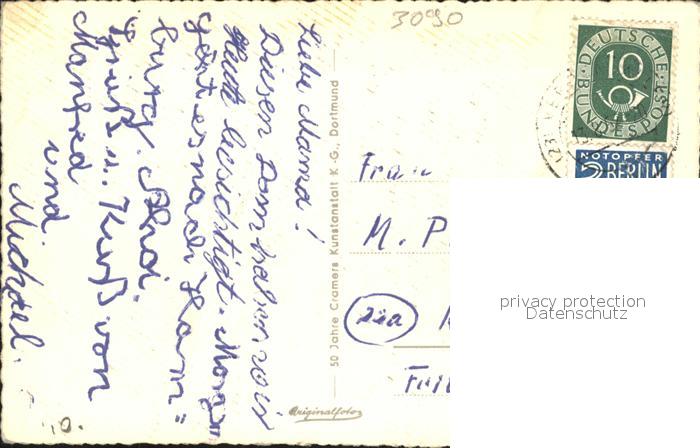 3090
Liebe Mama!
Diesen Dom haben wir
Heute besichtigt. Morgen
geht es nach Ham=
burg.
Gruß u. Kuß von
Manfred
und
Michael.
50 Jahre Cramers Kunstanstalt K-G., Dortmund
Originalfoto
DEUTSCHE BUNDESPOST
10
NOTOPFER
2 BERLIN
Frau
M. P
privacy protection
Datenschutz